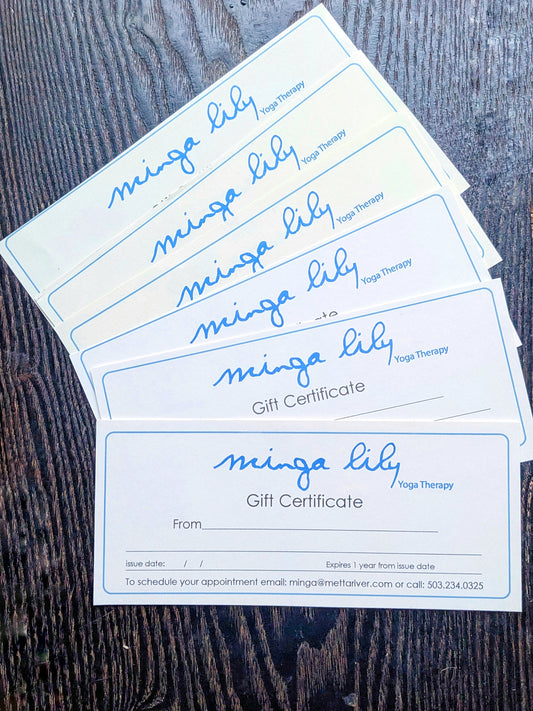 minga lily
Yoga Therapy
minga lily
Yoga Therapy
minga lily
Yoga Therapy
minga lily
Yoga Therapy
minga lily
Yoga Therapy
Gift Certificate
minga lily
Yoga Therapy
Gift Certificate
From
issue date: / / Expires 1 year from issue date
To schedule your appointment email: minga@mettariver.com or call: 503.234.0325